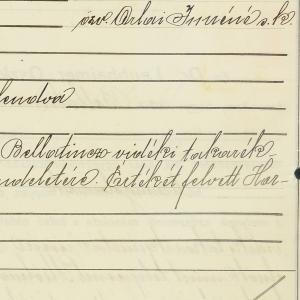 özv. Orbai Imréné s. k.
lendva
Bellatincz vidéki takarék-
ndeletére. Értékét felvett Har-